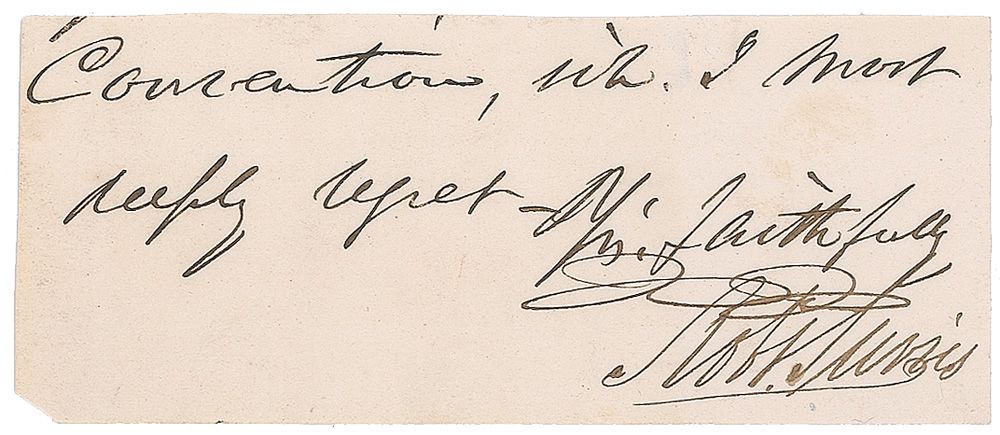 Convention, wh. I most
deeply regret – Yrs. faithfully
Robt. Purvis